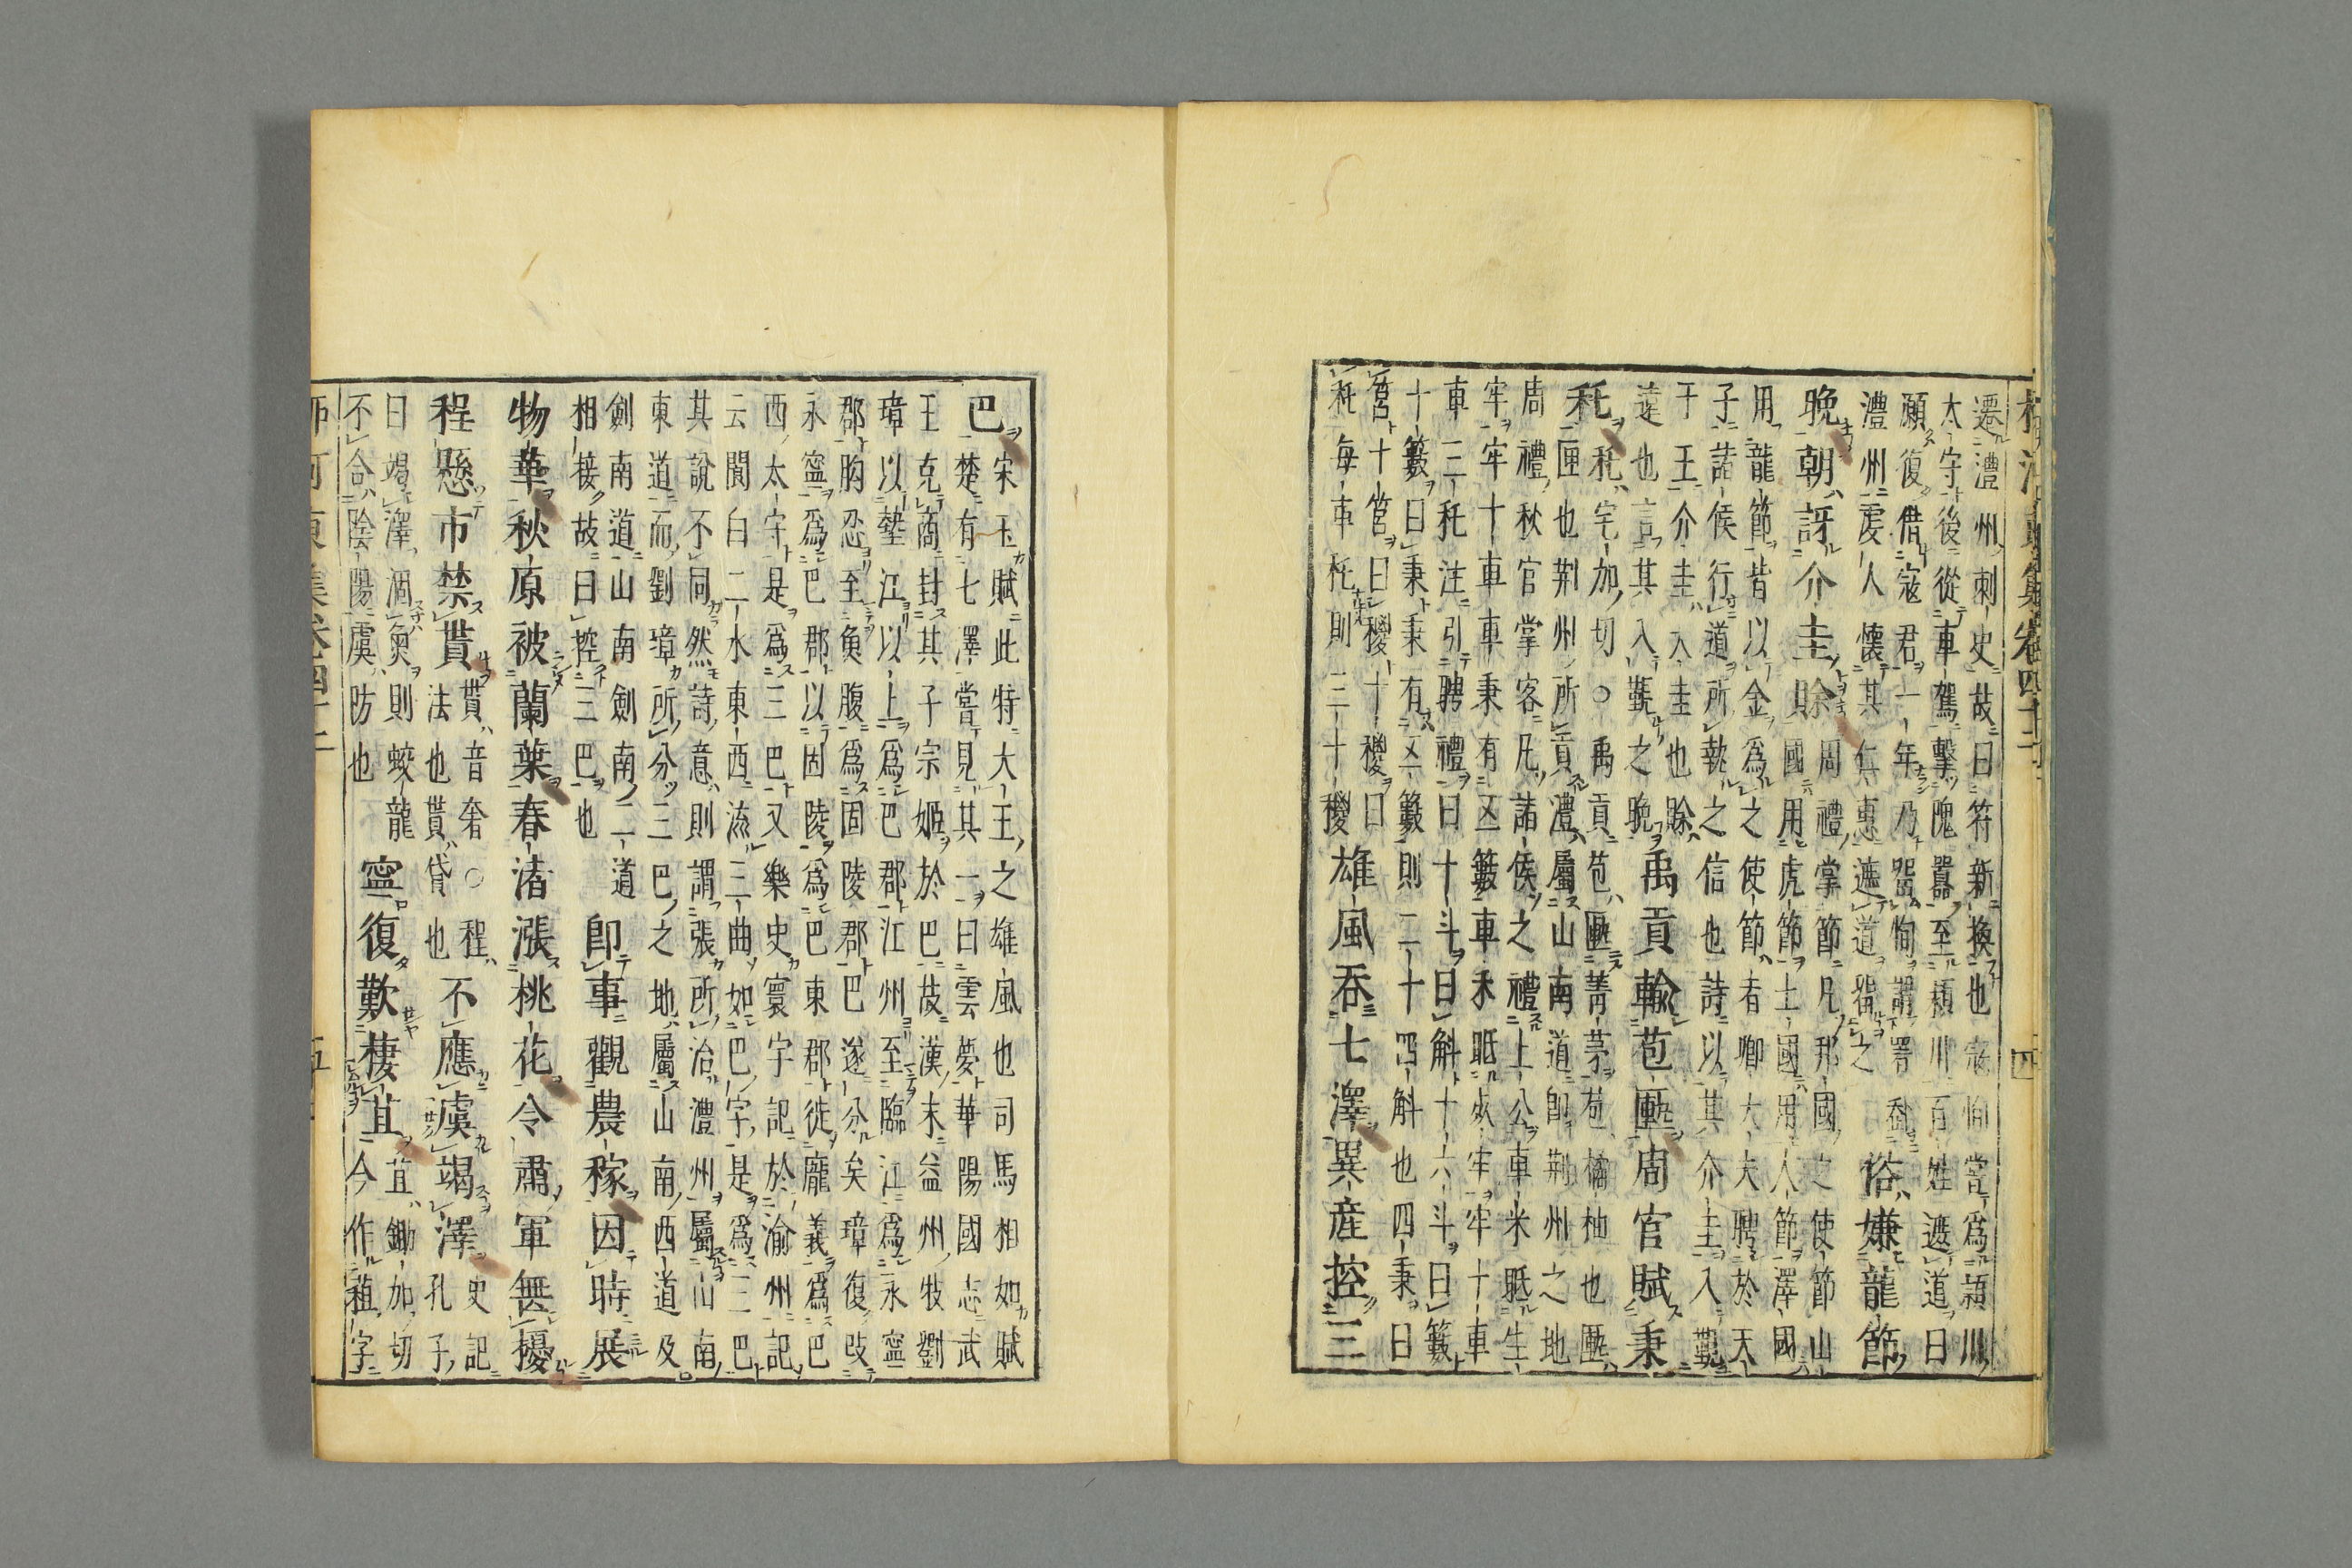 遷澧州刺史故曰符新換也寇恂嘗為潁川
太守後從車駕擊隗囂至潁川百姓遮道曰
願復借寇君一年乃畱恂謂畱
澧州處人懷其仁惠遮道畱之
俗嫌龍節
晚朝訝介圭賖
周禮掌節凡邦國之使節山
國用虎節土國用人節澤國
用龍節皆以金為之使節者卿大夫聘於天
子諸侯行道所執之信也詩以其介圭入覲
于王介圭大圭也賖
遠也言其入覲之晚
禹貢輸苞匭周官賦秉
秅
秅宅加切○禹貢苞匭菁茅苞橘柚也匭
匣也荆州所貢澧屬山南道即荆州之地
周禮秋官掌客凡諸侯之禮上公車米眡生
牢牢十車車秉有五籔車禾眡死牢牢十車
車三秅注引聘禮曰十斗曰斛十六斗曰籔
十籔曰秉秉有五籔則二十四斛也四秉曰
筥十筥曰稯十稯曰
秅每車秅則三十稯
雄風吞七澤異産控三
巴
宋玉賦此特大王之雄風也司馬相如賦
楚有七澤嘗見其一曰雲夢華陽國志武
王克商封其子宗姬於巴故漢末益州牧劉
璋以墊江以上為巴郡江州至臨江為永寧
郡朐忍至魚腹為固陵郡巴遂分矣璋復改
永寧為巴郡以固陵為巴東郡徙龐義為巴
西太守是為三巴又樂史寰宇記於渝州記
云閬白二水東西流三曲如巴字是為三巴
其說不同然詩意則謂張所治澧州屬山南
東道而劉璋所分三巴之地屬山南西道及
劍南道山南劍南二道
相接故曰控三巴也
即事觀農稼因時展
物華秋原被蘭葉春渚漲桃花令肅軍無擾
程懸市禁貰
貰音奢○程
法也貰貸也
不應虞竭澤
史記
孔子
曰竭澤涸魚則蛟龍
不合陰陽虞防也
寧復歎棲苴
苴鋤加切
今作葅字